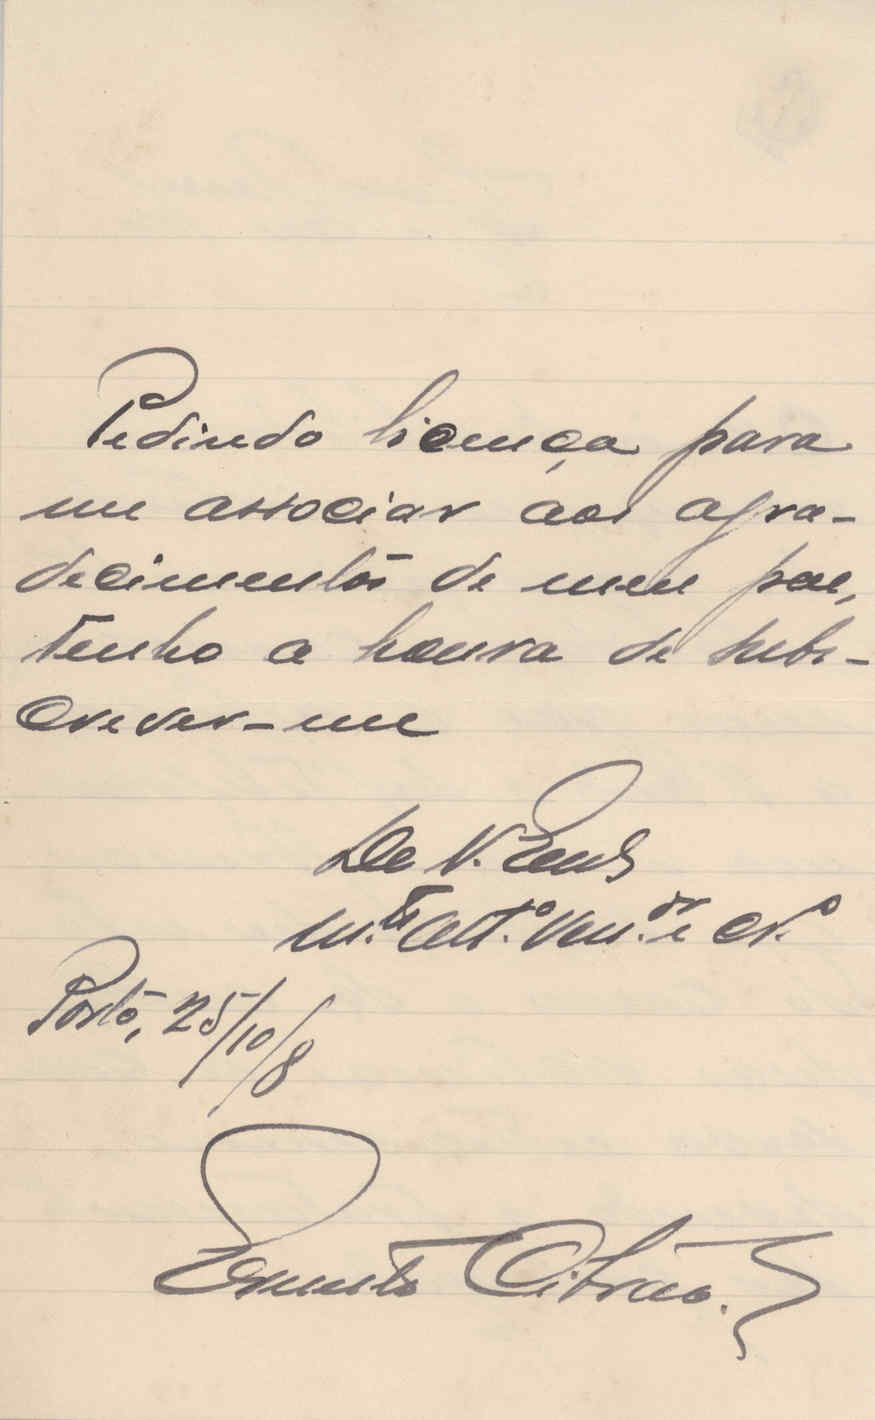 Pedindo licença para
me associar aos agra-
decimentos de meu pae,
tenho a honra de subs-
crever-me
De V. Excia
m.to att.o ven.or e cr.o
Porto, 25/10/8
Ernesto Cibrão.